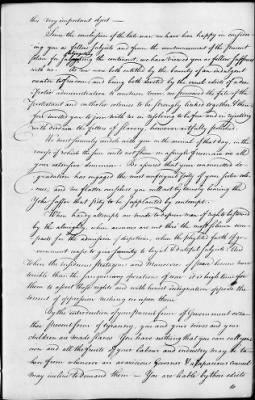 this very important object —
Since the conclusion of the late war we have been happy in consider-
ing you as fellow subjects and from the commencement of the present
plan for subjugating the continent, we have viewed you as fellow sufferers
with us — As we were both entitled by the bounty of an indulgent
creator to freedom and being both devoted by the cruel edicts of a des-
potic administration to common ruin, we perceived the fate of the
Protestant and catholic colonies to be strongly linked together & there-
fore invited you to join with us in resolving to be free and in rejecting
with disdain the fetters of slavery, however artfully polished.
We most sincerely condole with you on the arrival of that day, in the
course of which the sun could not shine on a single freeman in all
your extensive dominion. Be assured that your unmerited de-
gradation has engaged the most unfeigned pity of your sister colo-
nies; and we flatter ourselves you will not by tamely bearing the
Yoke suffer that pity to be supplanted by contempt.
When hardy attempts are made to deprive men of rights bestowed
by the almighty, when avenues are cut thro the most solemn com-
pacts for the admission of despotism, when the plighted faith of go-
vernment ceases to give security to loyal & dutiful subjects and
when the insidious stratagems and Manoeuvres of peace become more
terrible than the sanguinary operations of war it is high time for
them to assert those rights and with honest indignation oppose the
torrent of oppression rushing in upon them
By the introduction of your present form of Government or ra-
ther present form of tyranny, you and your wives and your
children are made slaves. You have nothing that you can call your
own and all the fruits of your labour and industry may be ta-
ken from whenever an avaricious Governor & a rapacious council
may incline to demand them — You are liable by their edicts
to